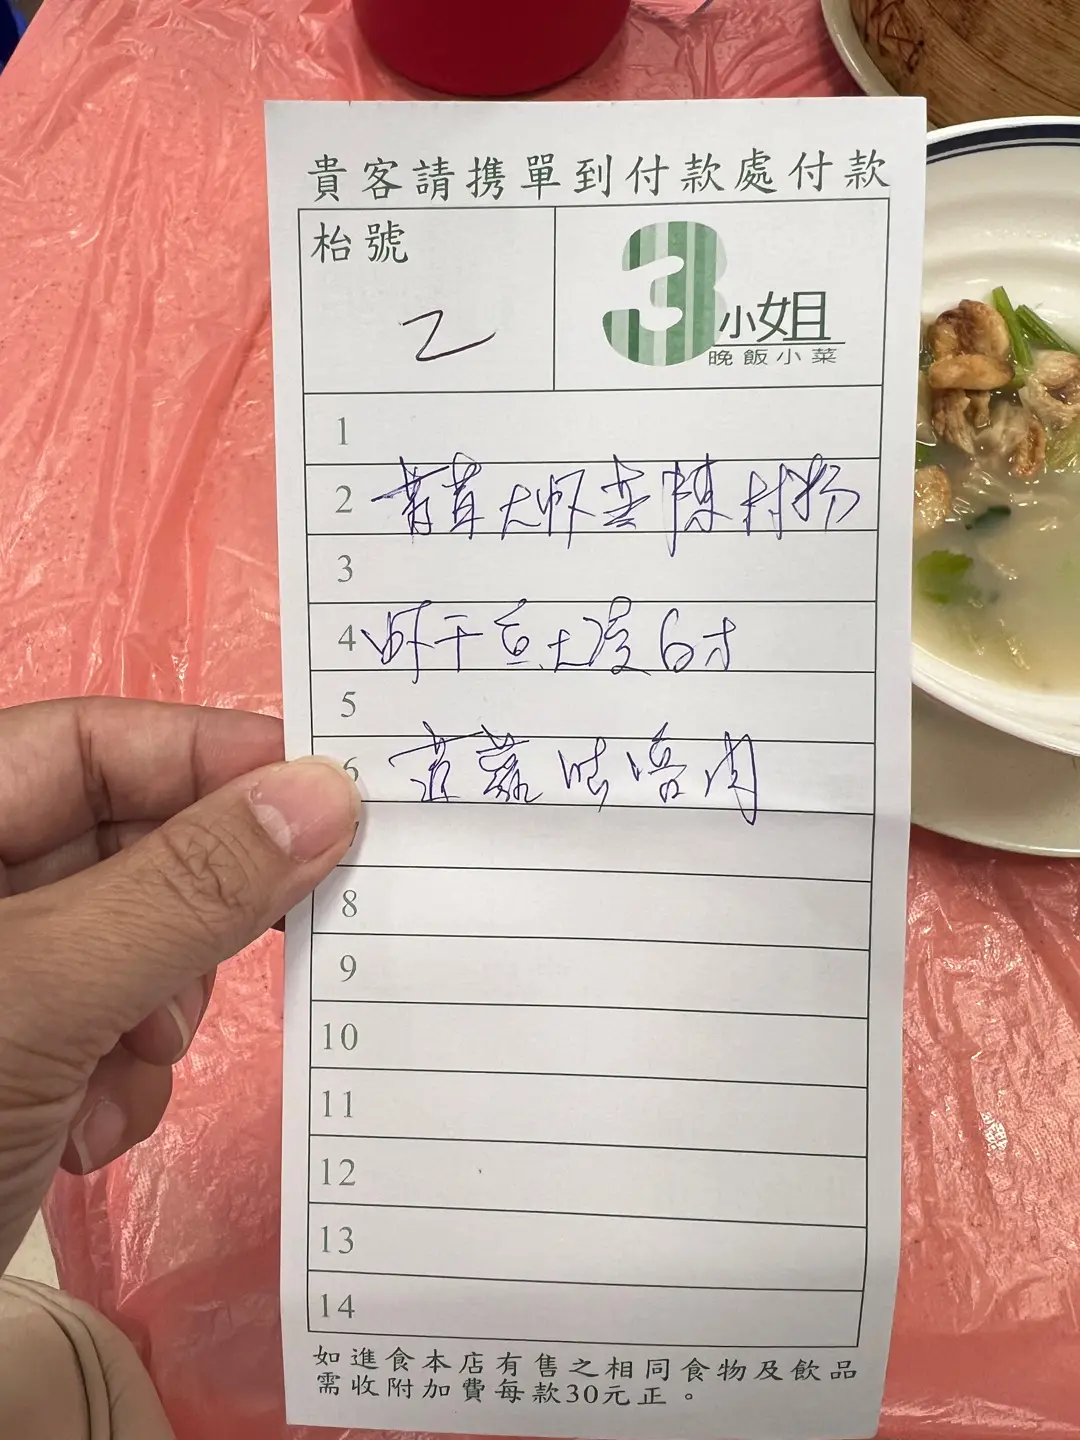 貴客請携單到付款處付款
枱號
2
3小姐
晚飯小菜
1
2 大虾 陳村粉
3
4 虾干 白才
5
6 肉
8
9
10
11
12
13
14
如進食本店有售之相同食物及飲品
需收附加費每款30元正。